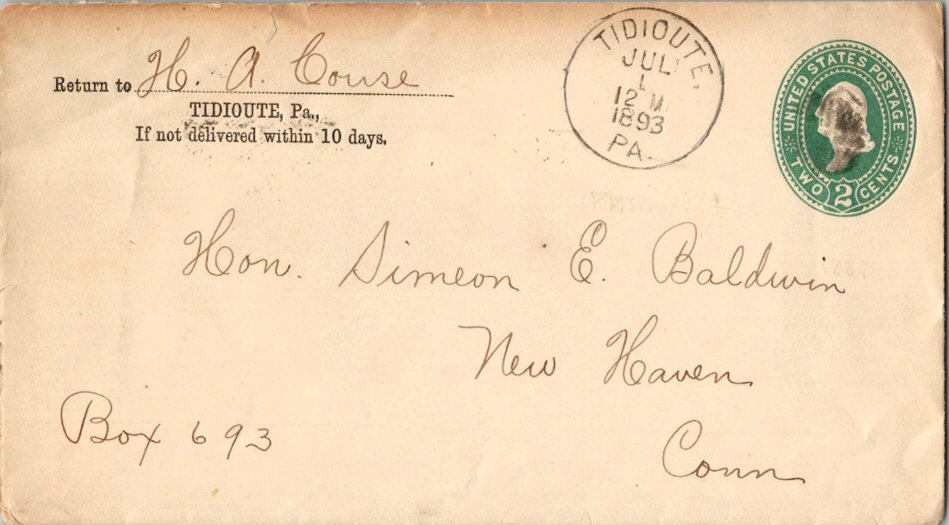 Return to H. A. Couse
TIDIOUTE, Pa.,
If not delivered within 10 days.
TIDIOUTE,
JUL
1
12 M
1893
PA.
UNITED STATES POSTAGE
TWO 2 CENTS
Hon. Simeon E. Baldwin
New Haven
Box 693
Conn